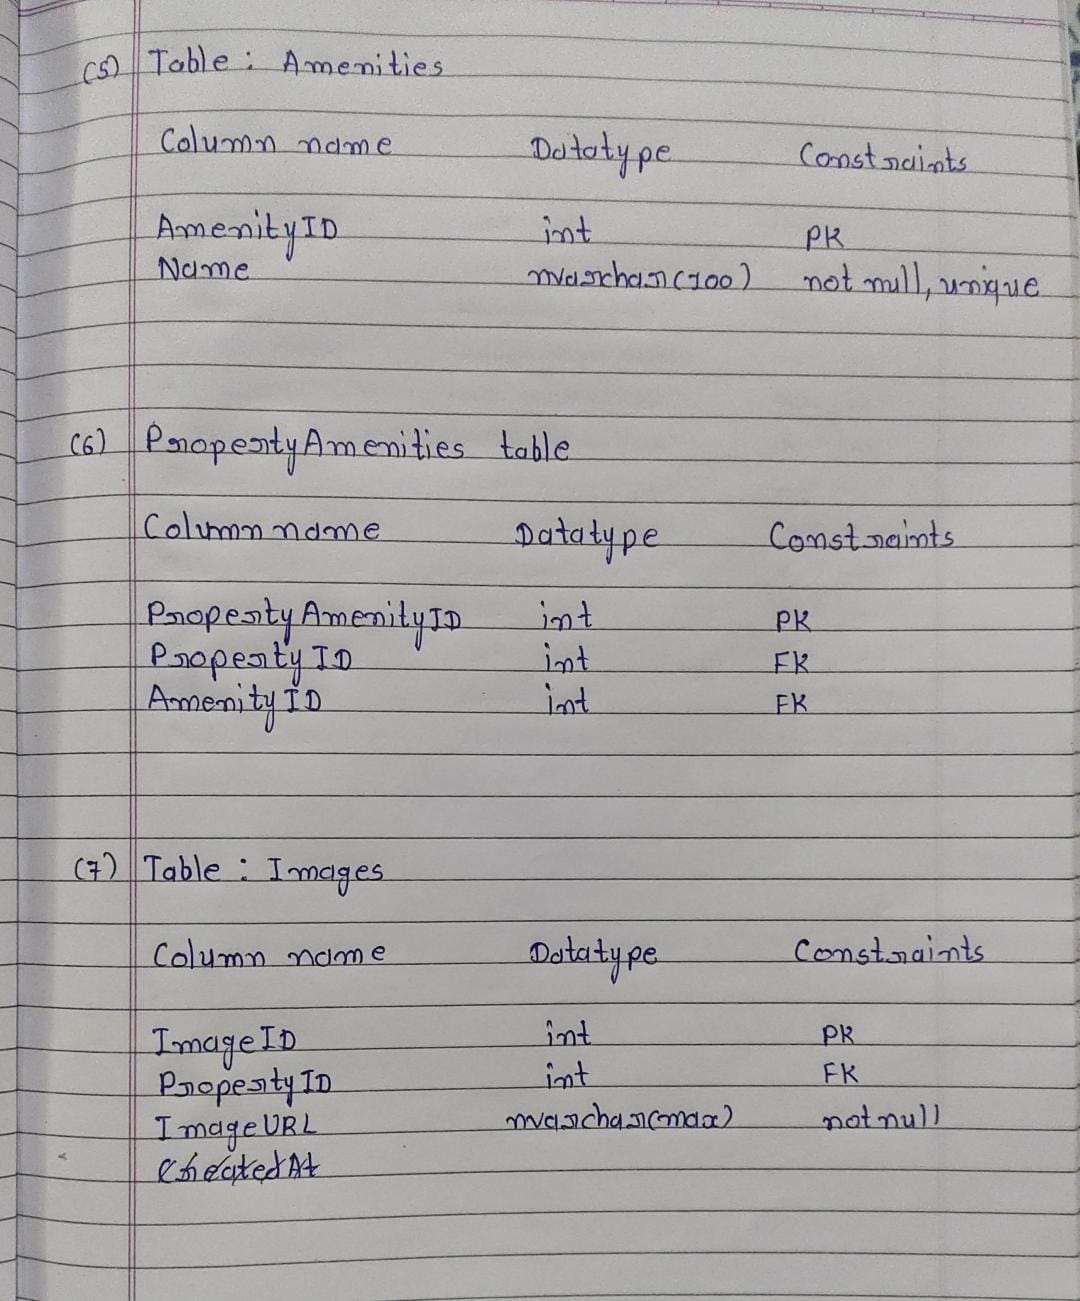 (5) Table : Amenities
Column name Datatype Constraints
AmenityID int PK
Name nvarchar(100) not null, unique
(6) PropertyAmenities table
Column name Datatype Constraints
PropertyAmenityID int PK
PropertyID int FK
AmenityID int FK
(7) Table : Images
Column name Datatype Constraints
ImageID int PK
PropertyID int FK
ImageURL nvarchar(max) not null
CreatedAt